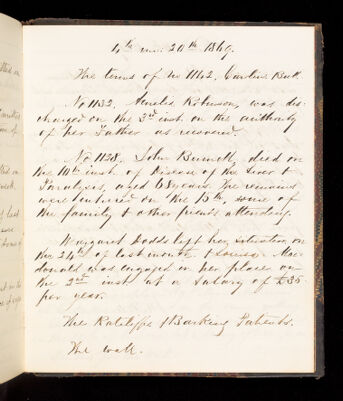 4th mo: 20th 1869.
The terms of No 1142, Caroline Ball
No 1132. Amelia Robinson, was dis-
charged on the 3rd inst. on the authority
of her Father as recovered.
No 1128. John Burnett, died on
the 10th inst of Disease of the Liver &
Paralysis, aged 68 years. The remains
were interred on the 15th, some of
the family & other friends attending.
Margaret Dodds left her situation on
the 24th of last month & Louisa Mac-
donald was engaged in her place on
the 2nd inst at a Salary of £35
per year.
The Ratcliffe & Barking Patients.
The wall.